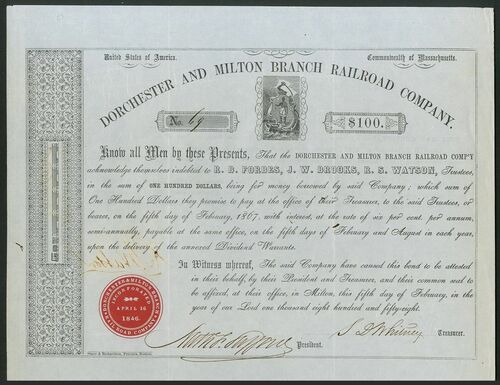 United States of America. Commonwealth of Massachusetts.
DORCHESTER AND MILTON BRANCH RAILROAD COMPANY.
No. 69 $100.
Know all Men by these Presents, That the DORCHESTER AND MILTON BRANCH RAILROAD COMP'Y
acknowledge themselves indebted to R. B. FORBES, J. W. BROOKS, R. S. WATSON, Trustees,
in the sum of ONE HUNDRED DOLLARS, being for money borrowed by said Company; which sum of
One Hundred Dollars they promise to pay at the office of their Treasurer, to the said Trustees, or
bearer, on the fifth day of February, 1867, with interest, at the rate of six per cent. per annum,
semi-annually, payable at the same office, on the fifth days of February and August in each year,
upon the delivery of the annexed Dividend Warrants.
In Witness whereof, The said Company have caused this bond to be attested
in their behalf, by their President and Treasurer, and their common seal to
be affixed, at their office, in Milton, this fifth day of February, in the
year of our Lord one thousand eight hundred and fifty-eight.
DORCHESTER & MILTON BRANCH RAIL ROAD COMPANY
INCORPORATED
APRIL 16
1846
President. Treasurer.